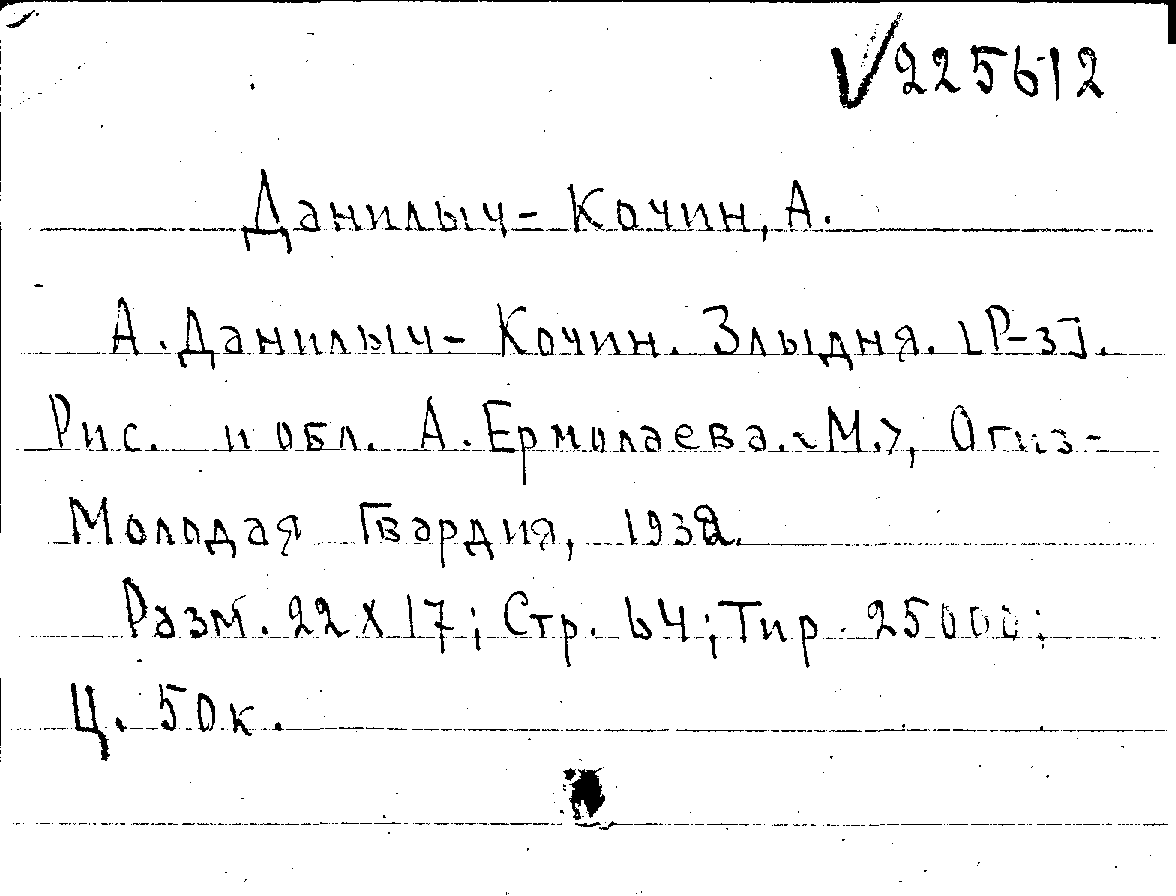 √225612
Данилыч-Кочин, А.
А. Данилыч-Кочин. Злыдня. [Р-з].
Рис. и обл. А. Ермолаева. <М.>, Огиз-
Молодая Гвардия, 1932.
Разм. 22х17; Стр. 64; Тир. 25000;
Ц. 50к.